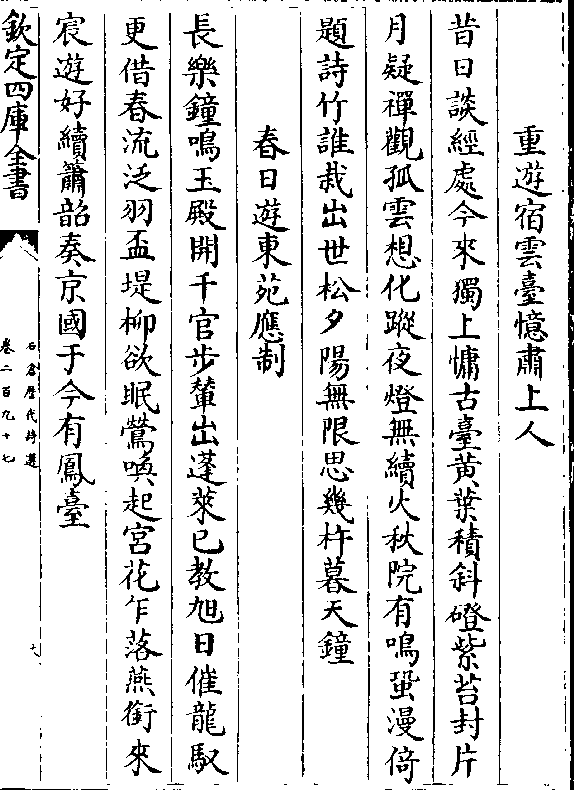 重遊宿雲臺憶肅上人
昔日談經處今來獨上慵古臺黃葉積斜磴紫苔封片
月疑禪觀孤雲想化蹤夜燈無續火秋院有鳴蛩漫倚
題詩竹誰栽出世松夕陽無限思幾杵暮天鐘
春日遊東苑應制
長樂鐘鳴玉殿開千官步輦出蓬萊已教旭日催龍馭
更借春流泛羽盃堤柳欲眠鶯喚起宮花乍落燕銜來
宸遊好續簫韶奏京國于今有鳳臺
欽定四庫全書
石倉歷代詩選
卷二百九十七